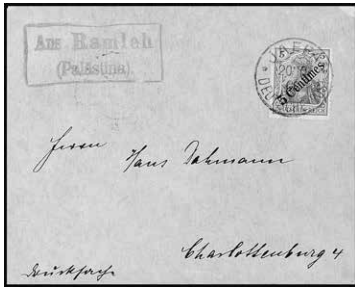 Aus Ramleh
(Palästina).
JAFFA
5 Centimes
Herrn
Hans Dohmann
Charlottenburg 4
Drucksache